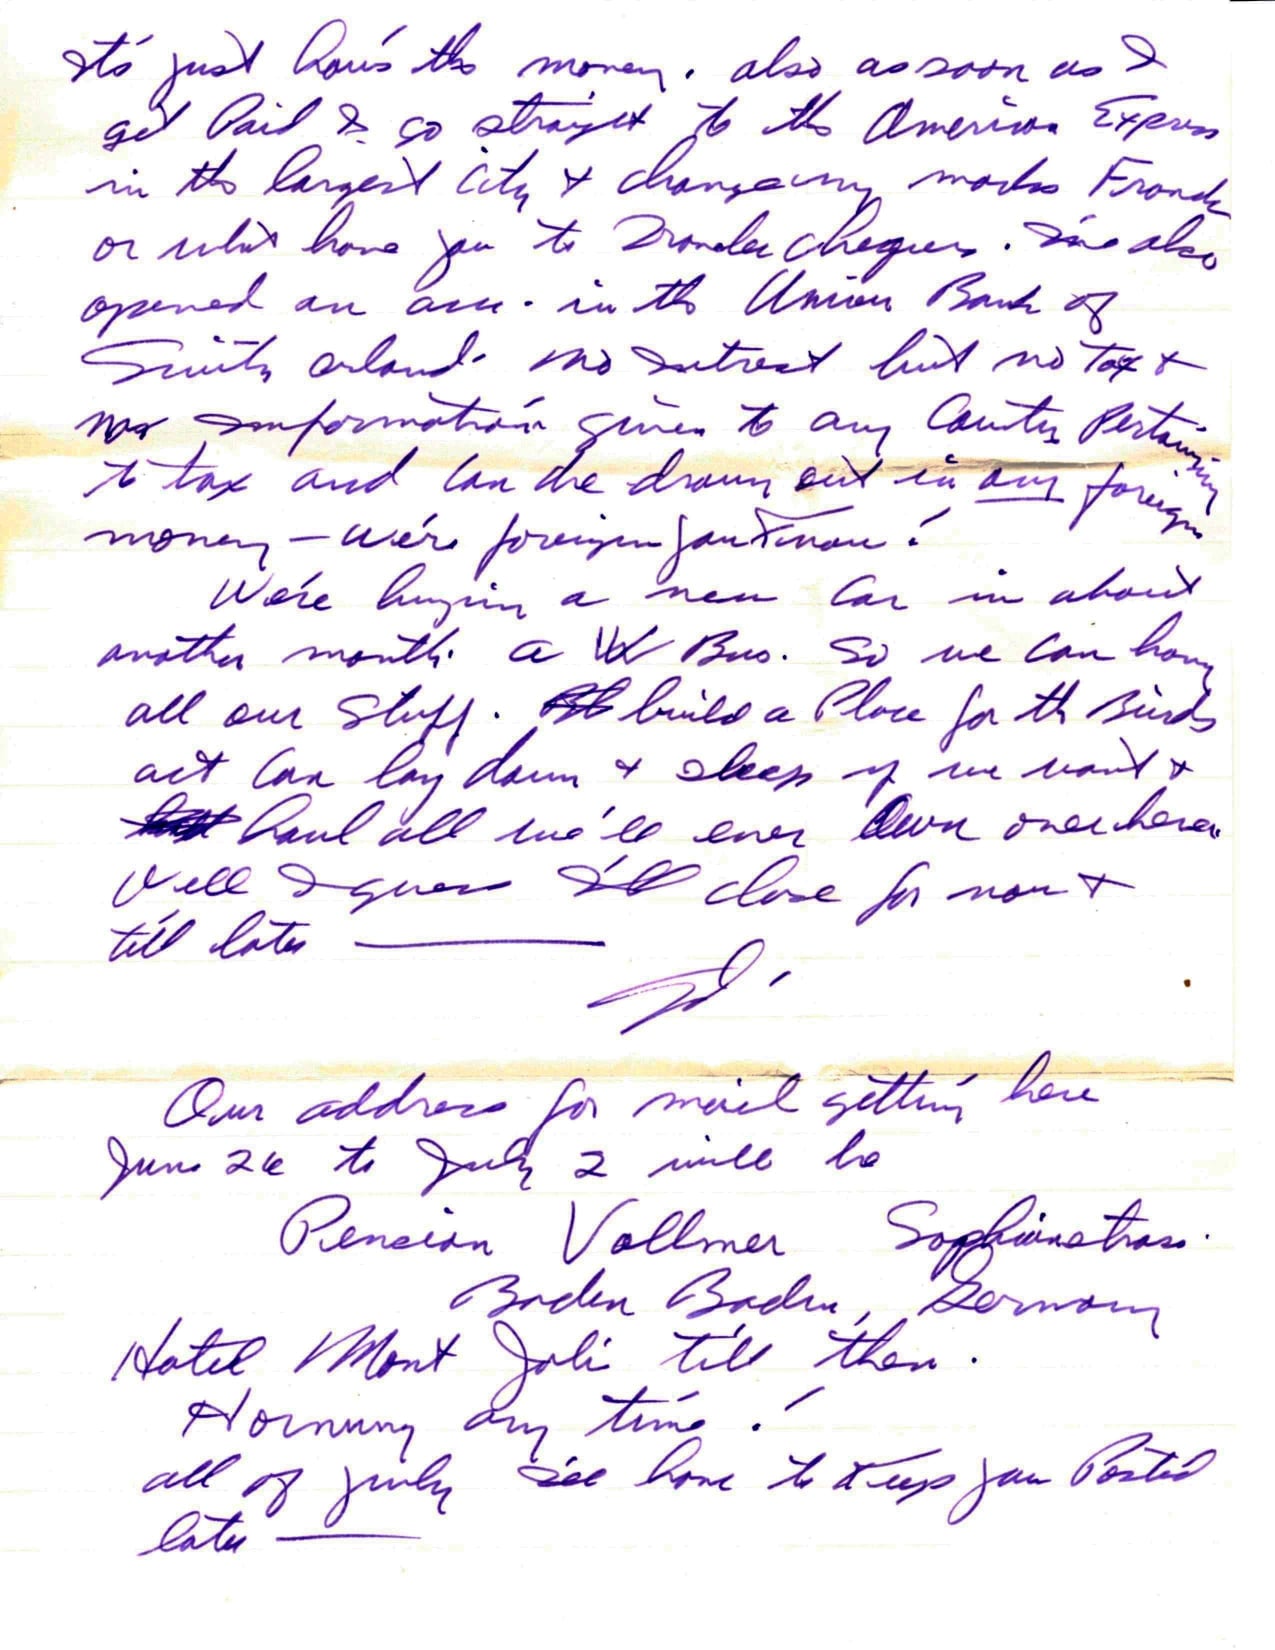 It's just how's the money. also as soon as I
get Paid I go straight to the American Express
in the largest City & change my marks Francs
or what have you to Traveler cheques. I've also
opened an acc. in the Union Bank of
Switz erland. No Intrest but no Tax &
no Information given to any Country Pertaining
to tax and Can be drawn out in any foreign
money – We're foreign you know!
We're buying a new Car in about
another month. a VW Bus. So we can
all our Stuff. build a Place for th Birds
act Can lay down & sleep if we want &
haul all we'll ever Own over here.
Well I guess I'll close for now &
till later ———
Our address for mail getting here
June 26 to July 2 will be
Pension Vollmer Sophienstrass.
Baden Baden, Germany
Hotel Mont Joli till then.
Hornung any time!
all of July I'll have to keep you Posted
later ———